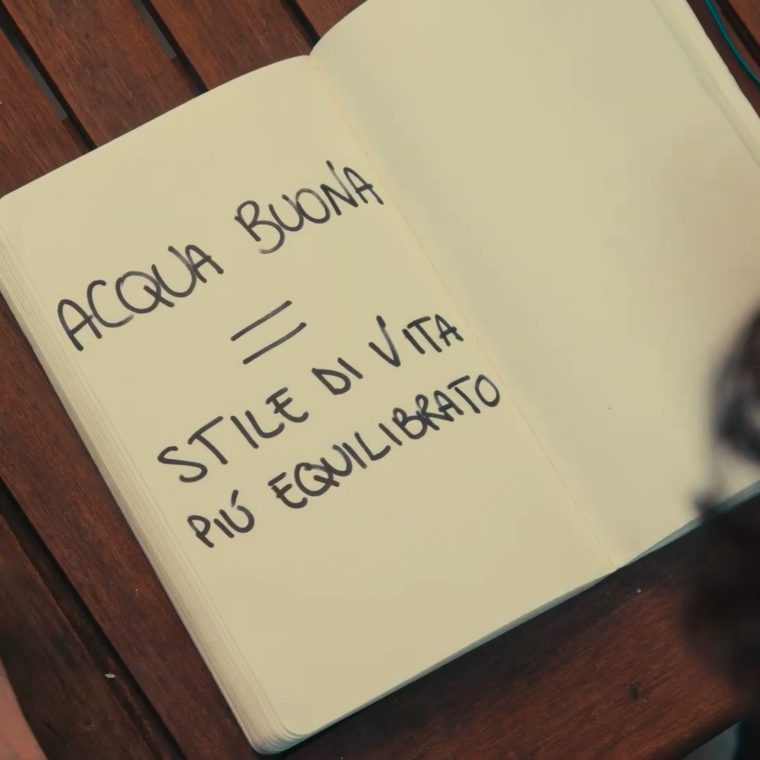 ACQUA BUONA
=
STILE DI VITA
PIÚ EQUILIBRATO